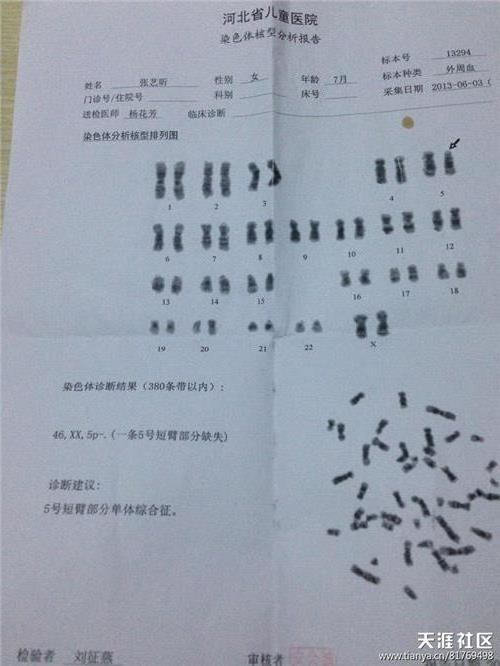 河北省儿童医院
染色体核型分析报告
标本号 13294
姓名 张艺昕 性别 女 年龄 7月 标本种类 外周血
门诊号/住院号 科别 床号 采集日期 2013-06-03 (
送检医师 杨花芳 临床诊断
染色体分析核型排列图
1 2 3 4 5
6 7 8 9 10 11 12
13 14 15 16 17 18
19 20 21 22 X
染色体诊断结果(380条带以内):
46,XX,5p-.(一条5号短臂部分缺失)
诊断建议:
5号短臂部分单体综合征。
检验者 刘征燕 审核者
天涯社区
www.tianya.cn/81769498